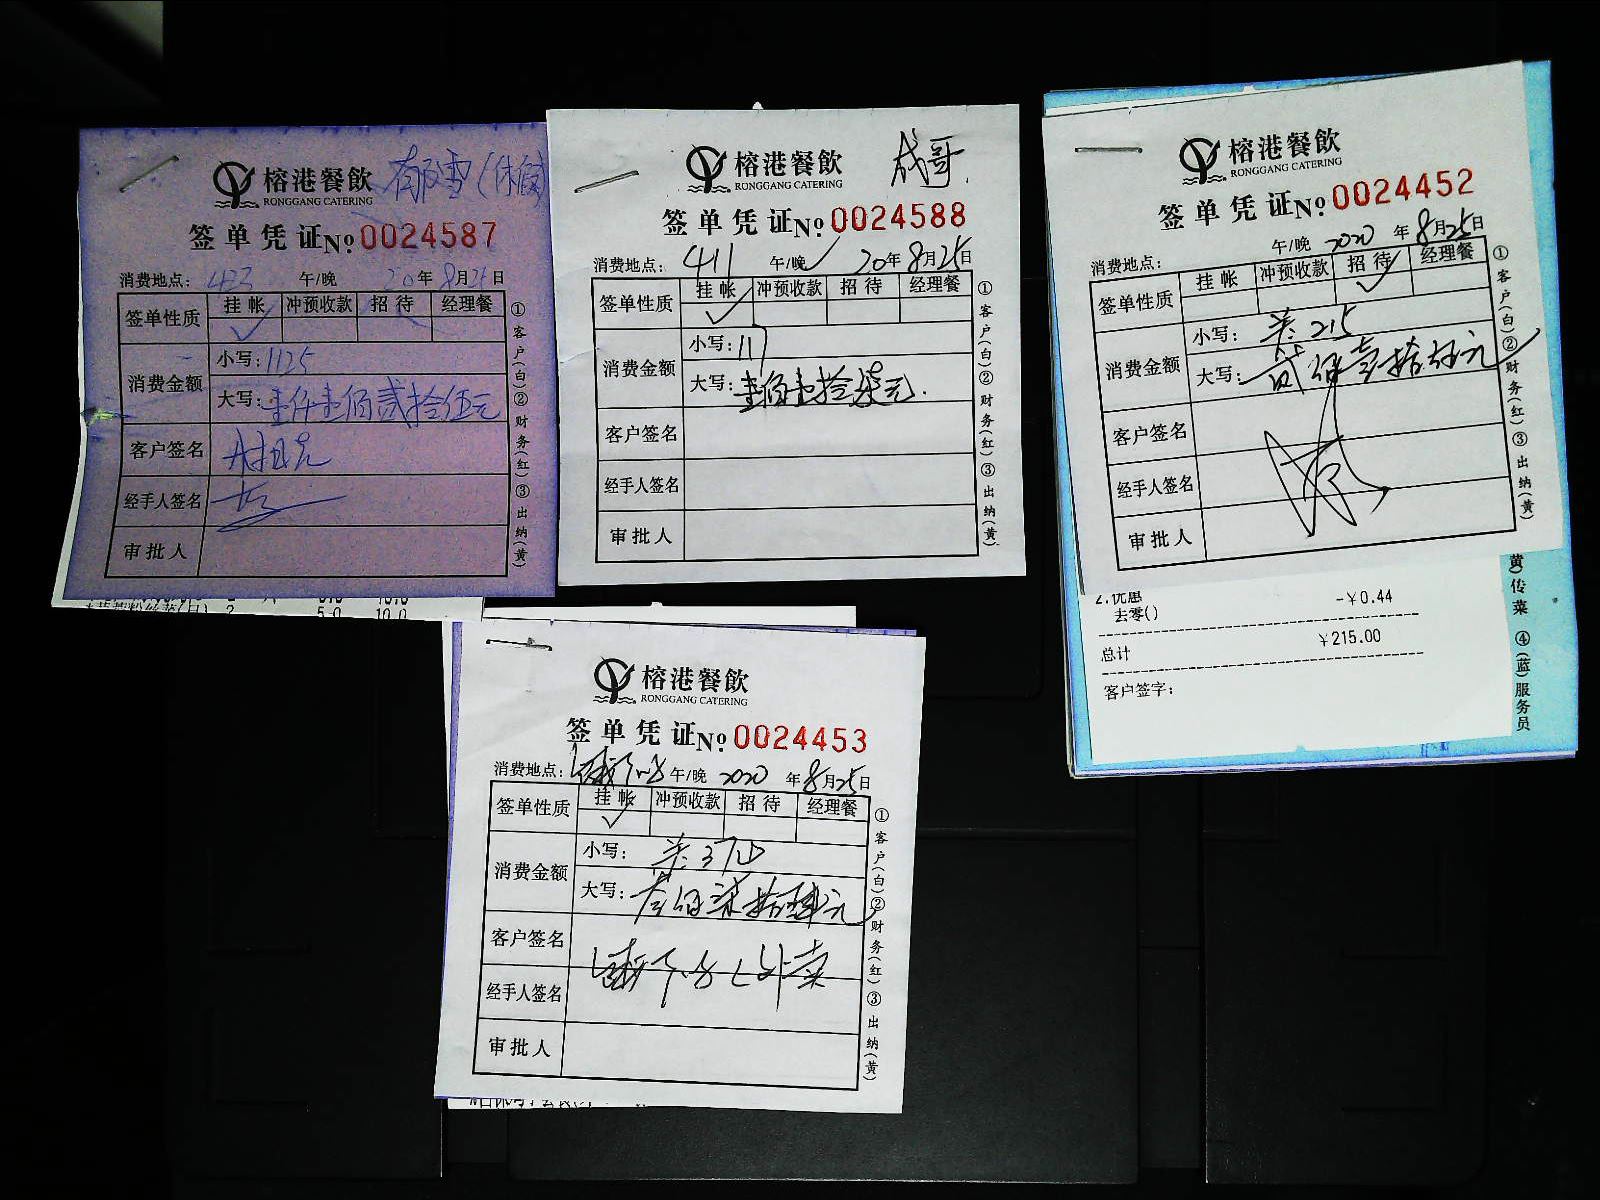 榕港餐飲
RONGGANG CATERING
签单凭证 No 0024587
消费地点: 423 午/晚 20年8月21日
签单性质 挂帐 冲预收款 招待 经理餐
消费金额 小写: 1125
大写: 壹仟壹佰贰拾伍元
客户签名
经手人签名
审批人
①客户(白)②财务(红)③出纳(黄)
5.0 10.0
榕港餐飲 成哥.
RONGGANG CATERING
签单凭证 No 0024588
消费地点: 411 午/晚 20年8月25日
签单性质 挂帐 冲预收款 招待 经理餐
消费金额 小写: 117
大写: 壹佰壹拾柒元.
客户签名
经手人签名
审批人
①客户(白)②财务(红)③出纳(黄)
榕港餐飲
RONGGANG CATERING
签单凭证 No 0024452
消费地点: 午/晚 2020年8月25日
签单性质 挂帐 冲预收款 招待 经理餐
消费金额 小写: 215
大写: 贰佰壹拾伍元
客户签名
经手人签名
审批人
①客户(白)②财务(红)③出纳(黄)
2.优惠 -￥0.44
去零()
总计 ￥215.00
客户签字:
黄)传菜 ④(蓝)服务员
榕港餐飲
RONGGANG CATERING
签单凭证 No 0024453
消费地点: 午/晚 2020年8月25日
签单性质 挂帐 冲预收款 招待 经理餐
消费金额 小写:
大写: 叁佰柒拾肆元
客户签名
经手人签名 外卖
审批人
①客户(白)②财务(红)③出纳(黄)